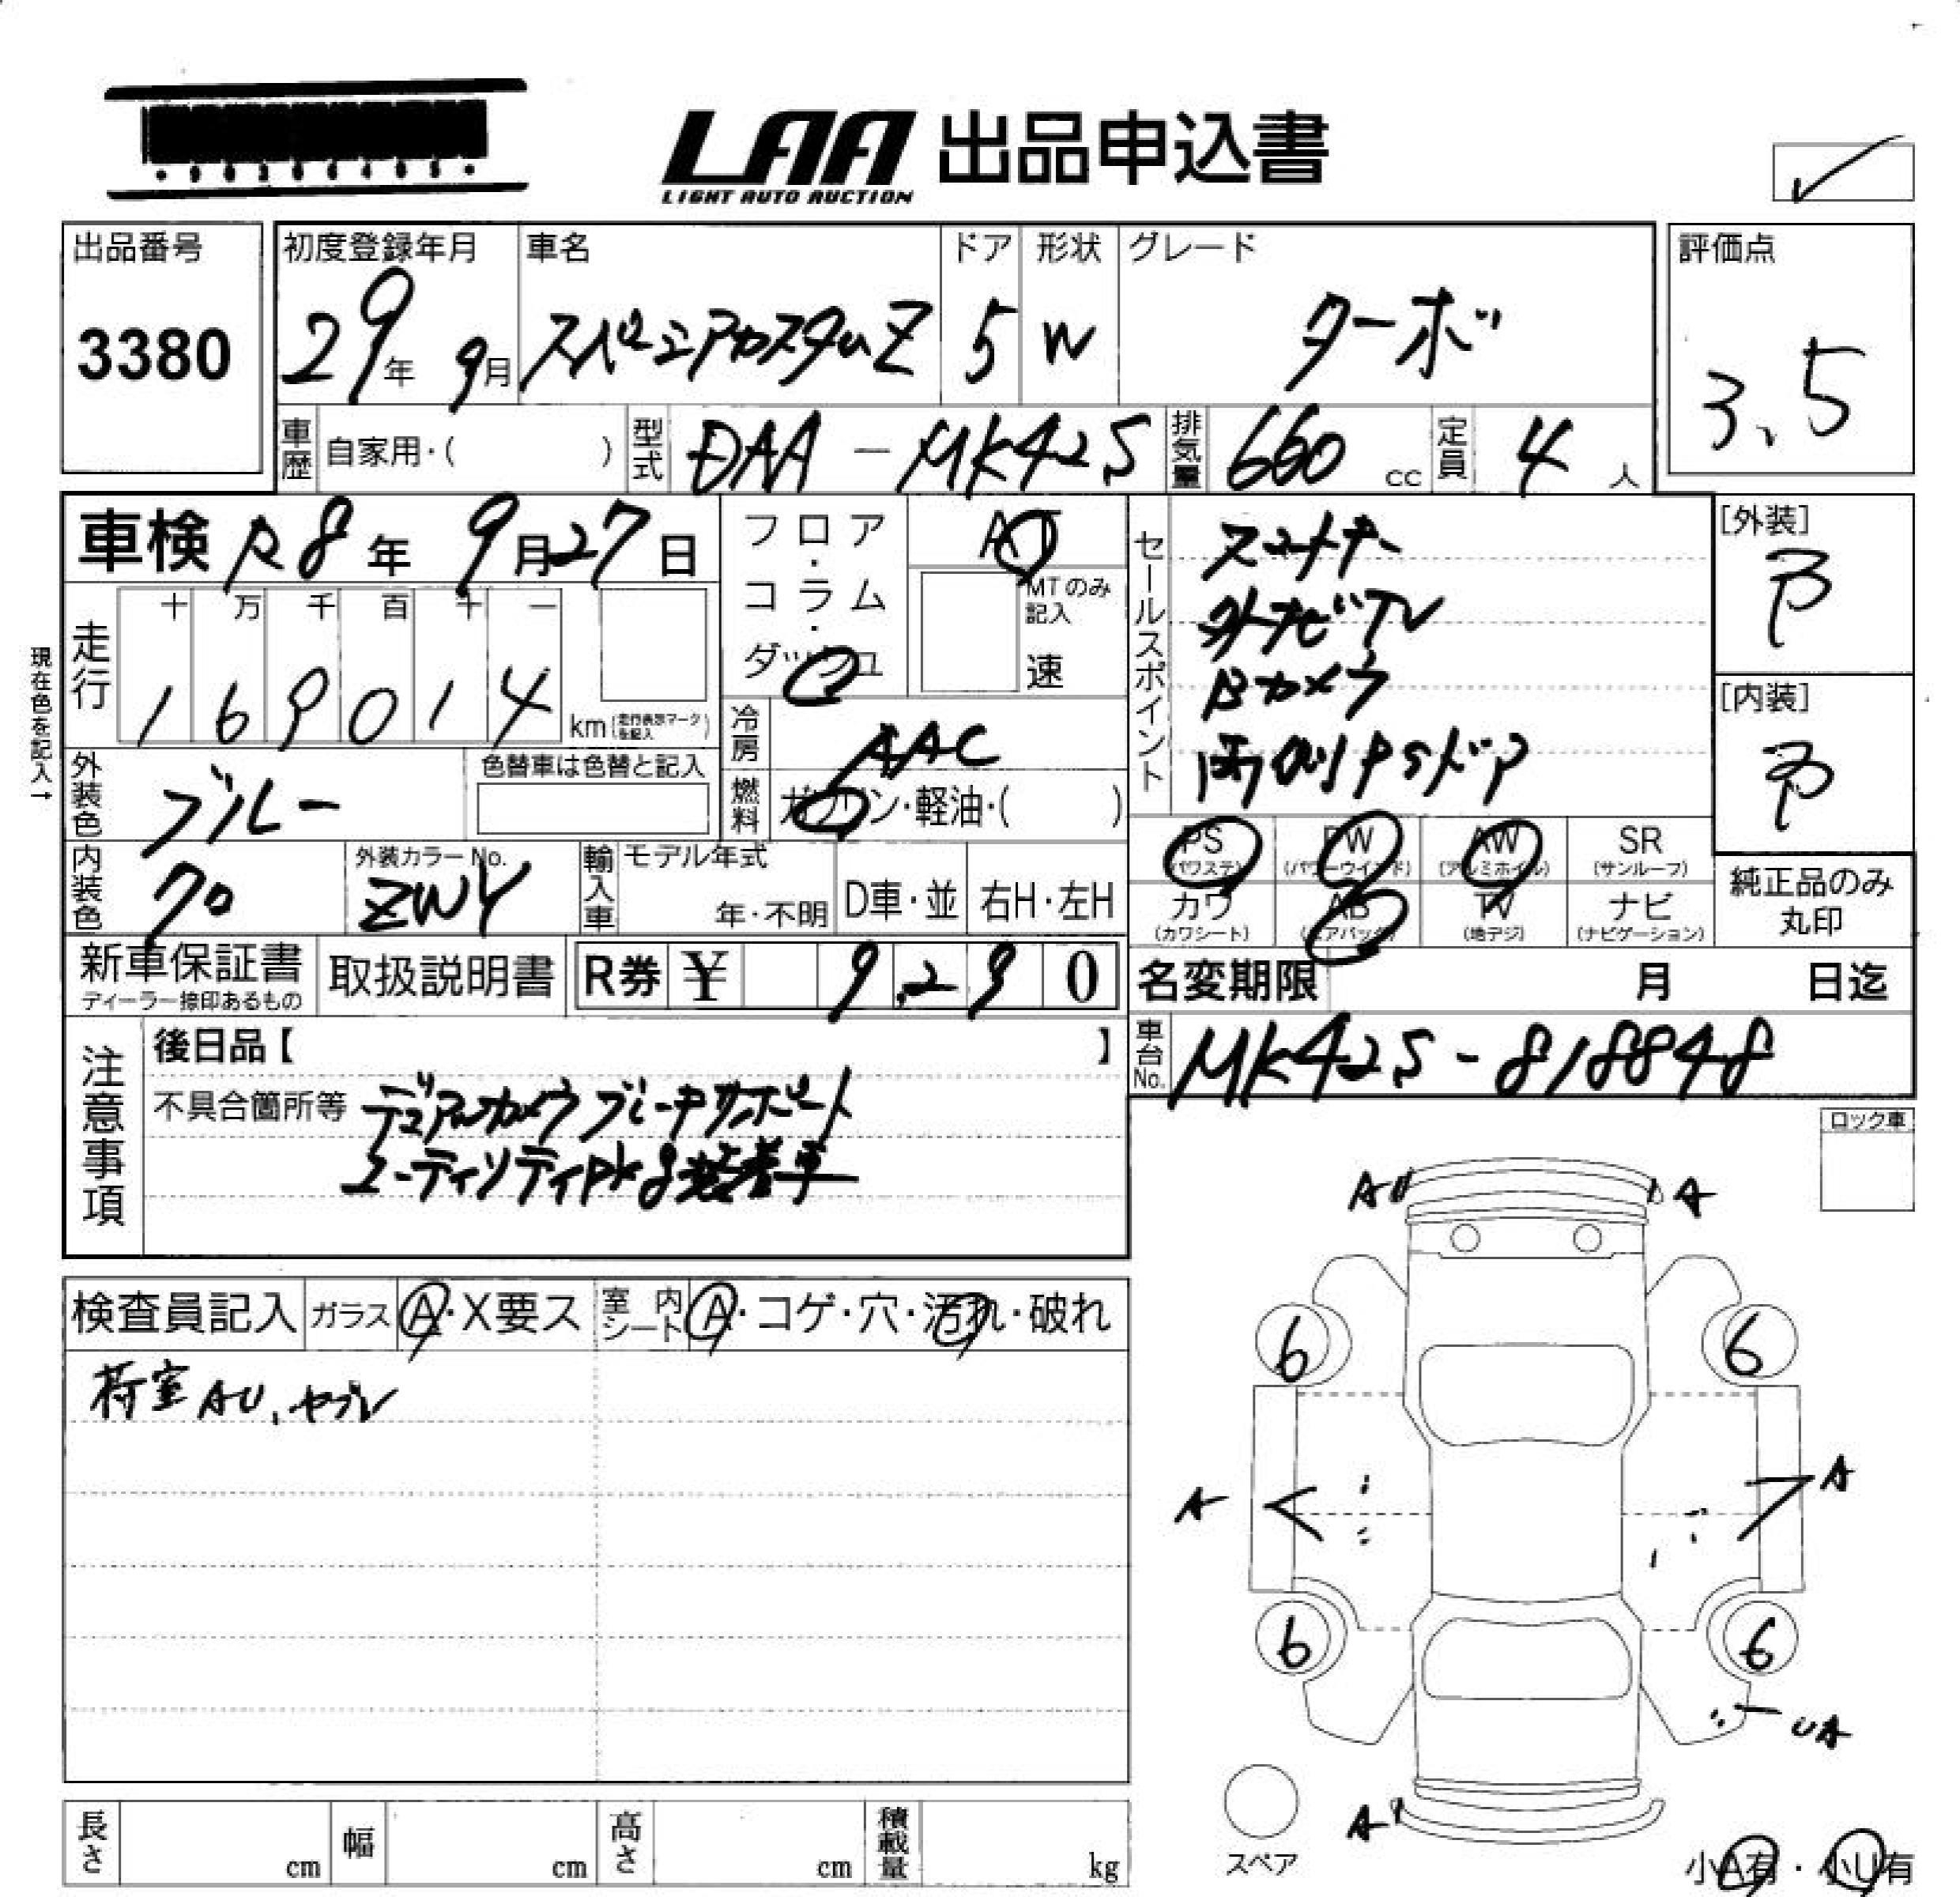 LAA 出品申込書
LIGHT AUTO AUCTION
出品番号
3380
初度登録年月
29年 9月
車名
スペーシアカスタムZ
ドア
5
形状
W
グレード
ターボ
評価点
3.5
車歴 自家用・( )
型式 DAA-MK42S
排気量 660 cc
定員 4 人
車検 R8年 9月27日
フロア・コラム・ダッシュ
AT
MTのみ記入
速
セールスポイント
スマートキー
外ナビTV
Bカメラ
両側PSドア
[外装]
B
[内装]
B
現在色を記入→
走行
十 万 千 百 十 一
1 6 9 0 1 4 km (走行表示マークを記入)
冷房 AAC
燃料 ガソリン・軽油・( )
外装色 ブルー
色替車は色替と記入
内装色 クロ
外装カラーNo.
ZWY
輸入車
モデル年式
年・不明
D車・並
右H・左H
PS (パワステ)
PW (パワーウインド)
AW (アルミホイル)
SR (サンルーフ)
カワ (カワシート)
AB (エアバック)
TV (地デジ)
ナビ (ナビゲーション)
純正品のみ
丸印
新車保証書
ディーラー捺印あるもの
取扱説明書
R券 ¥ 9,290
名変期限 月 日迄
車台No. MK42S-818848
注意事項
後日品【 】
不具合箇所等 デュアルカメラブレーキサポート
ユーティリティPKg装着車
ロック車
検査員記入
ガラス A・X要ス
室内シート A・コゲ・穴・汚れ・破れ
荷室AU、ヤブレ
A
A
6
6
A
A
6
6
UA
A
スペア
小A有・小U有
長さ cm
幅 cm
高さ cm
積載量 kg